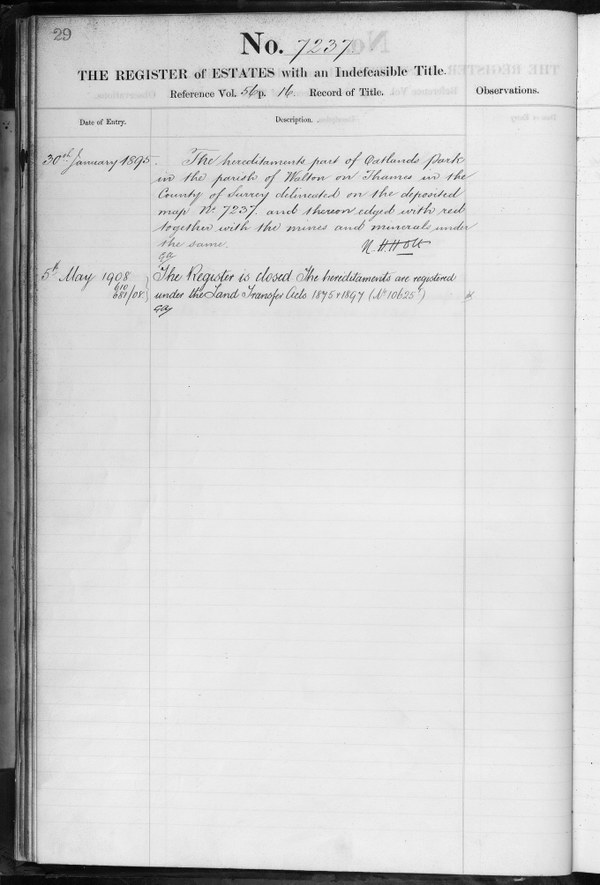 29
No. 7237
THE REGISTER of ESTATES with an Indefeasible Title.
Reference Vol. 56 p. 16. Record of Title.
Observations.
Date of Entry.
Description.
30th January 1895.
The hereditaments part of Oatlands Park
in the parish of Walton on Thames in the
County of Surrey delineated on the deposited
map No. 7237. and thereon edged with red
together with the mines and minerals under
the same.
5th May 1908
610
681/08
The Register is closed The hereditaments are registered
under the Land Transfer Acts 1875 & 1897 (No 110625)